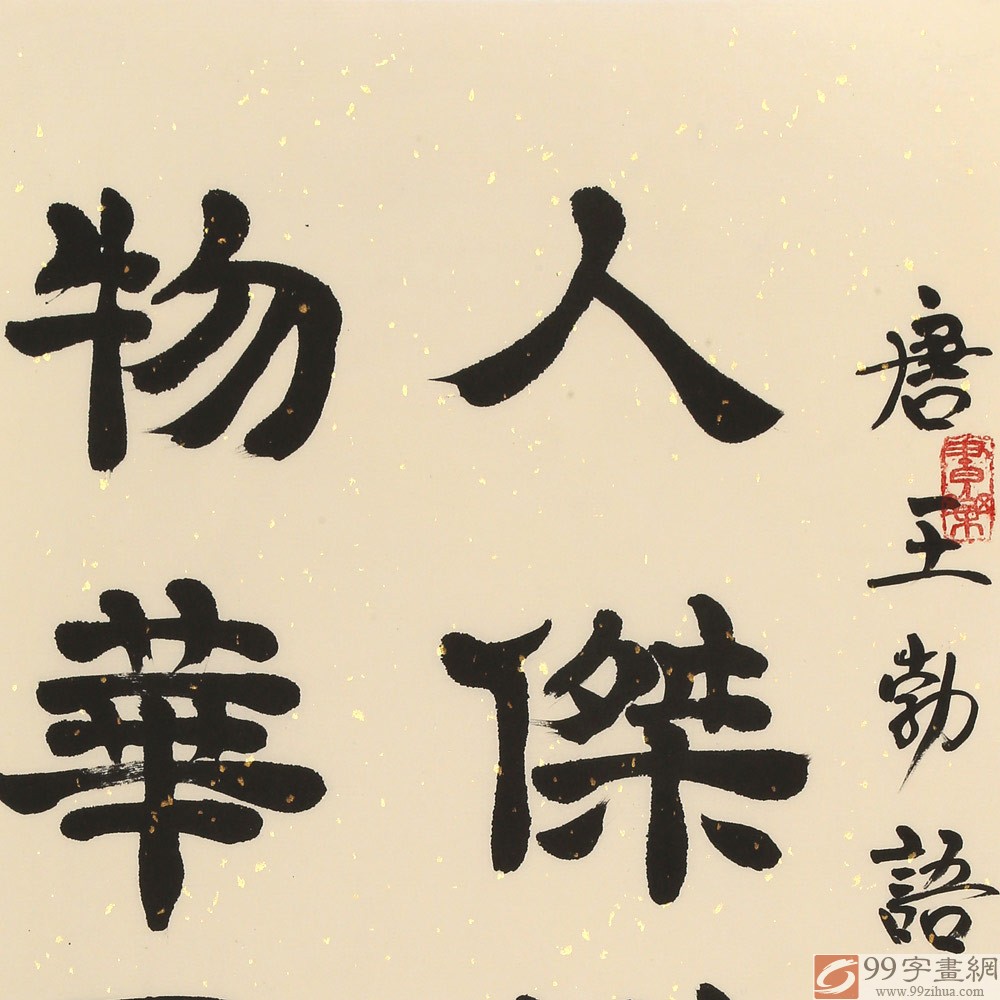 唐王勃語
人傑
物華
99字畫網
www.99zihua.com